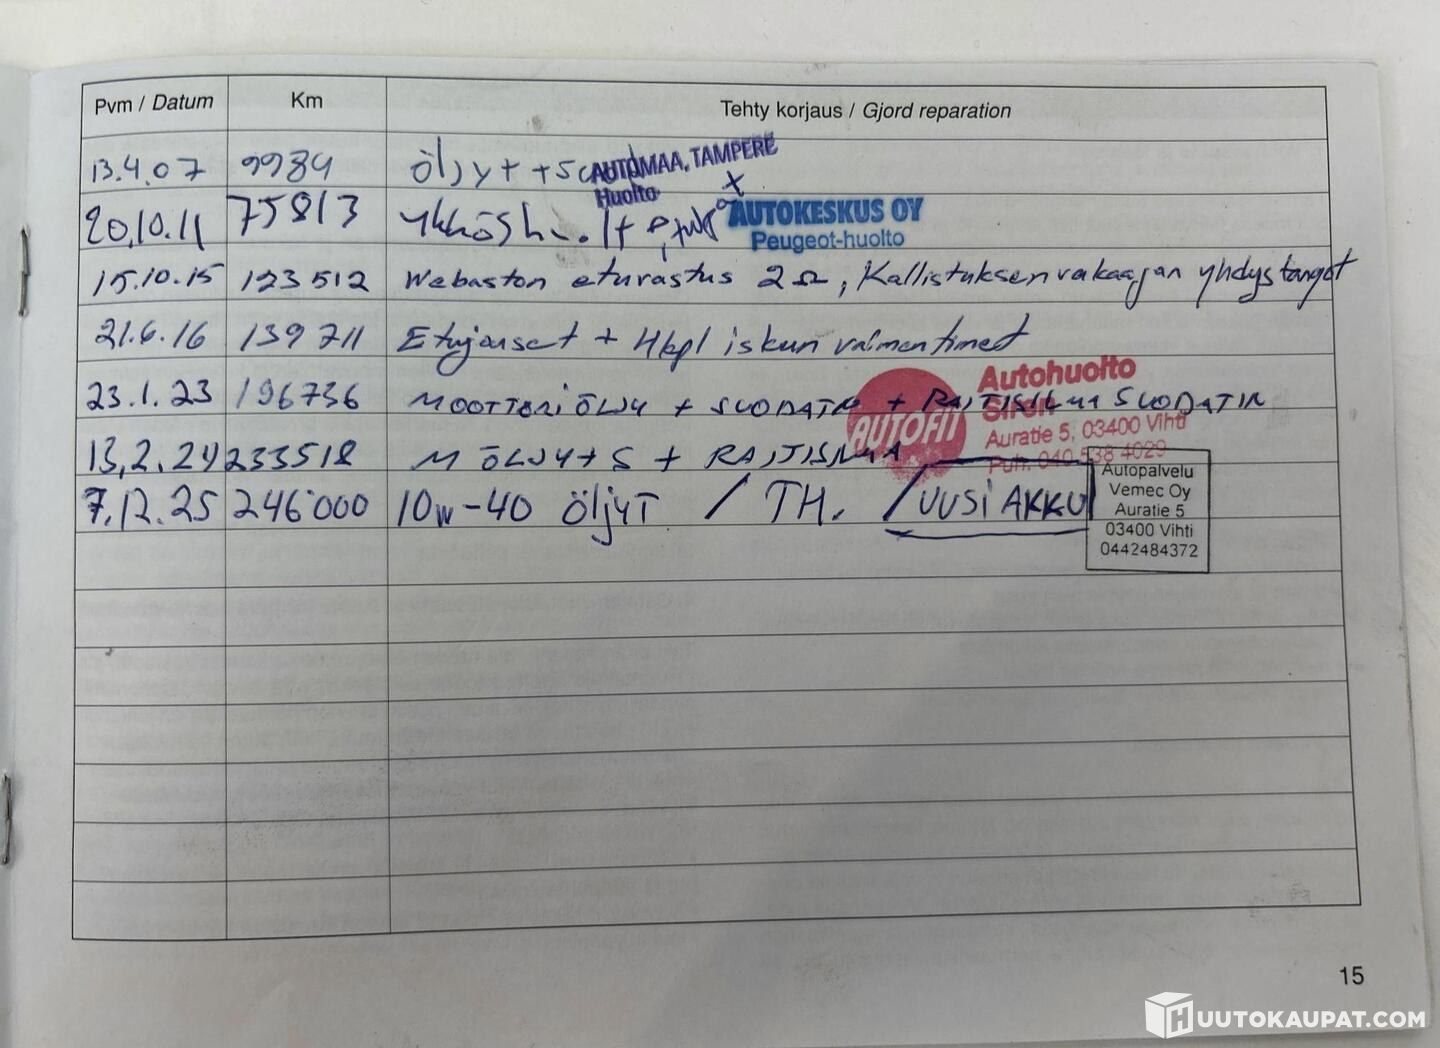 Pvm / Datum Km Tehty korjaus / Gjord reparation
13.4.07 9984 öljyt + AUTOMAA, TAMPERE
Huolto
20.10.11 75813 AUTOKESKUS OY
Peugeot-huolto
15.10.15 123512 Webaston etuvastus 2Ω, Kallistuksenvakaajan yhdystangot
21.6.16 139711 Etujouset + 4kpl iskunvaimentimet
23.1.23 196736 MOOTTORIÖLJY + SUODATIN + RAITISILMASUODATIN
AUTOFIT
Autohuolto
Auratie 5, 03400 Vihti
Puh. 040 538 4029
13.2.24 233518 M ÖLJY+S + RAITISILMA
7.12.25 246000 10W-40 öljyT / TH. / UUSI AKKU
Autopalvelu
Vemec Oy
Auratie 5
03400 Vihti
0442484372
15
HUUTOKAUPAT.COM